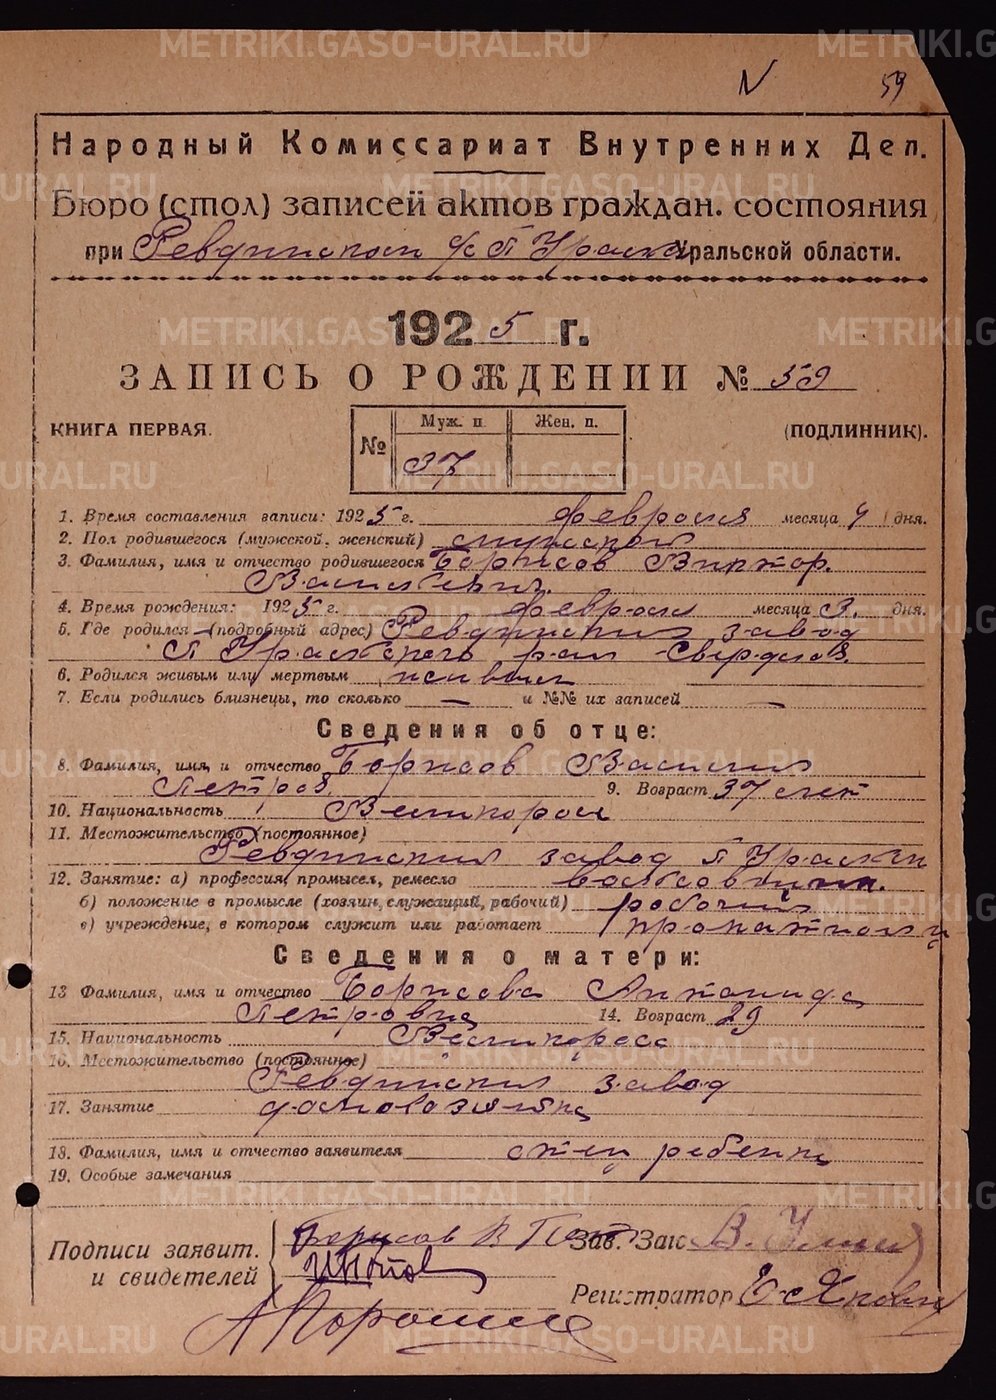 METRIKI.GASO-URAL.RU
59
Народный Комиссариат Внутренних Дел.
Бюро (стол) записей актов граждан. состояния
при Ревдинском П Уральской области.
1925 г.
ЗАПИСЬ О РОЖДЕНИИ № 59
КНИГА ПЕРВАЯ.
№ Муж. п. Жен. п.
(ПОДЛИННИК).
37
1. Время составления записи: 1925 г. февраля месяца 4 дня.
2. Пол родившегося (мужской, женский) мужской
3. Фамилия, имя и отчество родившегося Борисов Виктор
Васильевич.
4. Время рождения: 1925 г. февраля месяца 3. дня.
5. Где родился (подробный адрес) Ревдинский завод
П Уральского рай Свердлов.
6. Родился живым или мертвым живым
7. Если родились близнецы, то сколько — и №№ их записей —
Сведения об отце:
8. Фамилия, имя и отчество Борисов Василий
Петров. 9. Возраст 37 лет
10. Национальность Великоросс
11. Местожительство (постоянное)
Ревдинский завод П Уральск
12. Занятие: а) профессия, промысел, ремесло
б) положение в промысле (хозяин, служащий, рабочий) рабочий
в) учреждение, в котором служит или работает прокатном ц
Сведения о матери:
13 Фамилия, имя и отчество Борисова Антонида
Петровна 14. Возраст 29
15. Национальность Великоросс
16. Местожительство (постоянное)
Ревдинский завод
17. Занятие домохозяйка
18. Фамилия, имя и отчество заявителя отец ребенка
19. Особые замечания
Подписи заявит. и свидетелей
Борисов В Пет
Зав. Загс В.
Регистратор